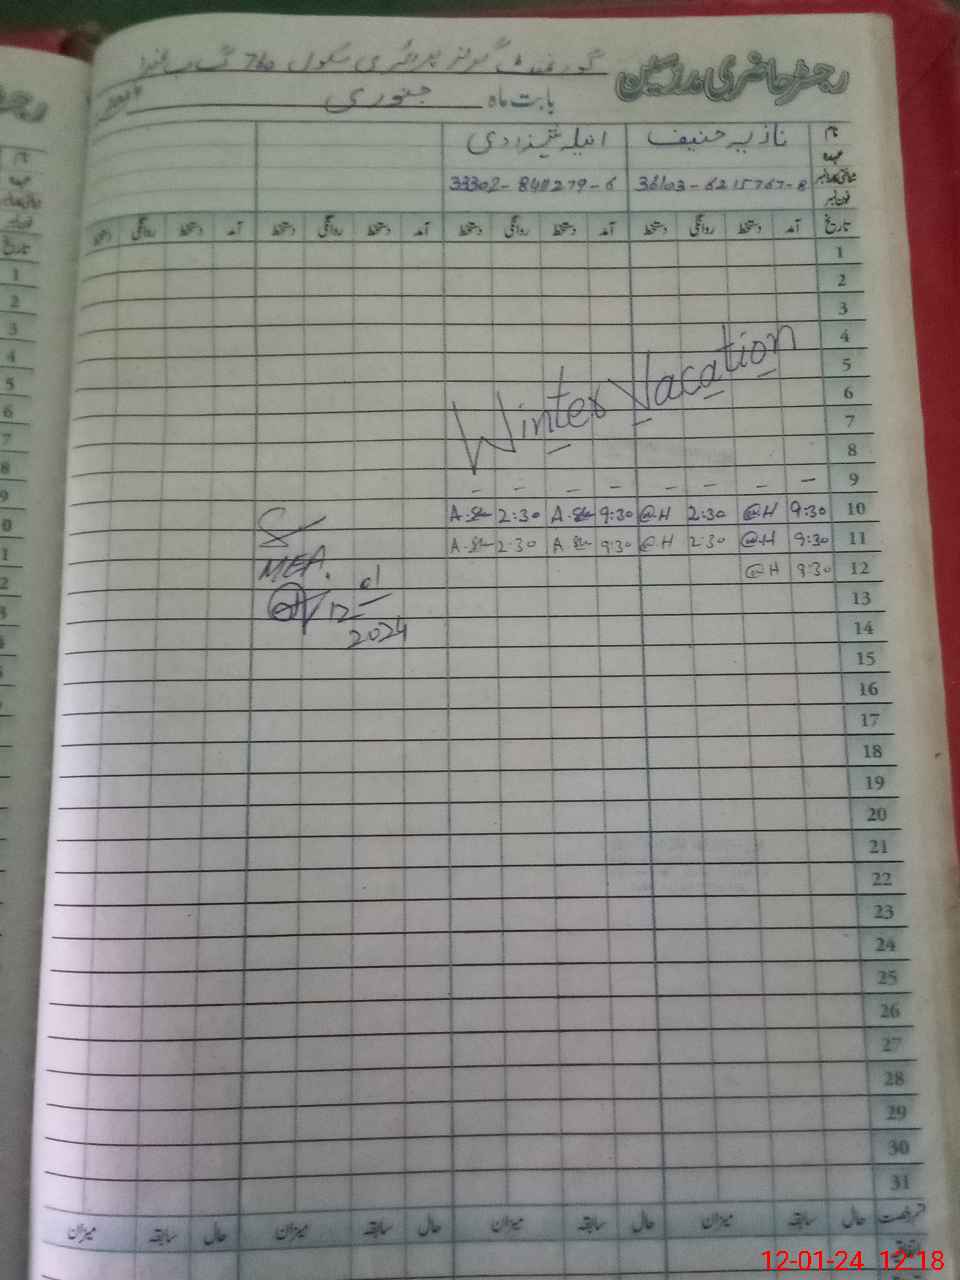 رجسٹر حاضری مدرسین گورنمنٹ گرلز پرائمری سکول 760 گ ب
بابت ماہ جنوری
نام نازیہ حنیف انیلہ شہزادی
عہدہ
شناختی کارڈ نمبر 36103-6215767-8 33302-8411279-6
فون نمبر
تاریخ آمد دستخط روانگی دستخط آمد دستخط روانگی دستخط آمد دستخط روانگی دستخط آمد دستخط روانگی دستخط
1
2
3
4
5
Winter Vacation
6
7
8
9 - - - - - - - -
10 9:30 @H 2:30 @H 9:30 A.Sh 2:30 A.Sh
11 9:30 @H 2:30 @H 9:30 A.Sh 2:30 A.Sh
12 9:30 @H
MEA.
12 01
2024
13
14
15
16
17
18
19
20
21
22
23
24
25
26
27
28
29
30
31
قسم رخصت حال سابقہ میزان حال سابقہ میزان حال سابقہ میزان حال سابقہ میزان
اتفاقیہ
12-01-24 12:18